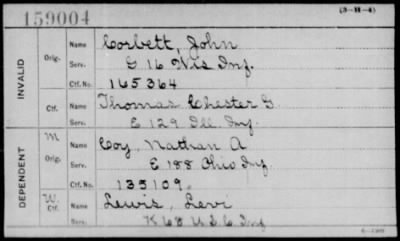 159004
(3-H-4)
INVALID
Orig.
Name Corbett, John
Serv. G 16 Wis Inf.
Ctf. No. 165364
Ctf.
Name Thomas Chester G.
E 129 Ill. Inf.
DEPENDENT
M
Orig.
Name Coy, Nathan A
Serv. E 188 Ohio Inf
Ctf. No. 135109.
W.
Ctf.
Name Lewis, Levi
K 68 U S C Inf